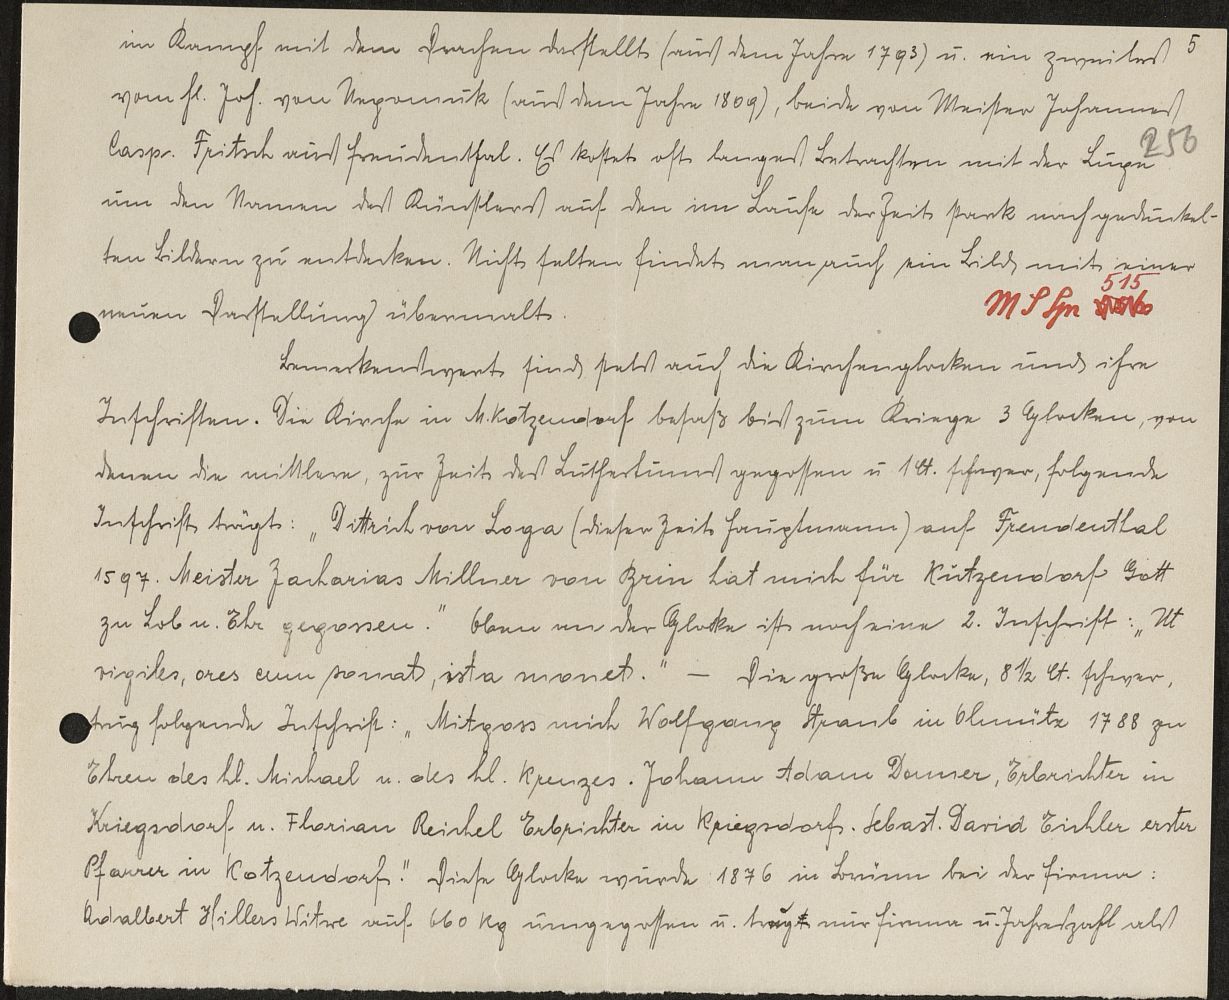 5
im Kampf mit dem Drachen darstellt (aus dem Jahre 1793) u. ein zweites
vom hl. Joh. von Nepomuk (aus dem Jahre 1809), beide von Meister Johannes
Casp. Fritsch aus Freudenthal. Es kostet oft langes Betrachten mit der Lupe
256
um den Namen des Künstlers auf den im Laufe der Zeit stark nachgedunkel-
ten Bildern zu entdecken. Nicht selten findet man auch ein Bild mit einer
515
neuen Darstellung übermalt.
M S Spr
Bemerkenswert sind stets auch die Kirchenglocken und ihre
Inschriften. Die Kirche in M. Kotzendorf besaß bis zum Kriege 3 Glocken, von
denen die mittlere, zur Zeit des Luthertums gegossen u 1 Ct. schwer, folgende
Inschrift trägt: „Dittrich von Loga (dieser Zeit Hauptmann) auf Freudenthal
1597. Meister Zacharias Millner von Brin hat mich für Kutzendorf Gott
zu Lob u. Ehr gegossen." Oben an der Glocke ist noch eine 2. Inschrift: „Ut
vigiles, ores cum sonat, ista monet." — Die große Glocke, 8 1/2 Ct. schwer,
trug folgende Inschrift: „Mitgoss mich Wolfgang Straub in Olmütz 1788 zu
Ehren des hl. Michael u. des hl. Kreuzes. Johann Adam Donner, Erbrichter in
Kriegsdorf u. Florian Reichel Erbrichter in Kriegsdorf. Sebast. David Eichler erster
Pfarrer in Kotzendorf." Diese Glocke wurde 1876 in Brünn bei der Firma:
Adalbert Hillers Witwe auf 660 kg umgegossen u. trug nur Firma u. Jahreszahl als